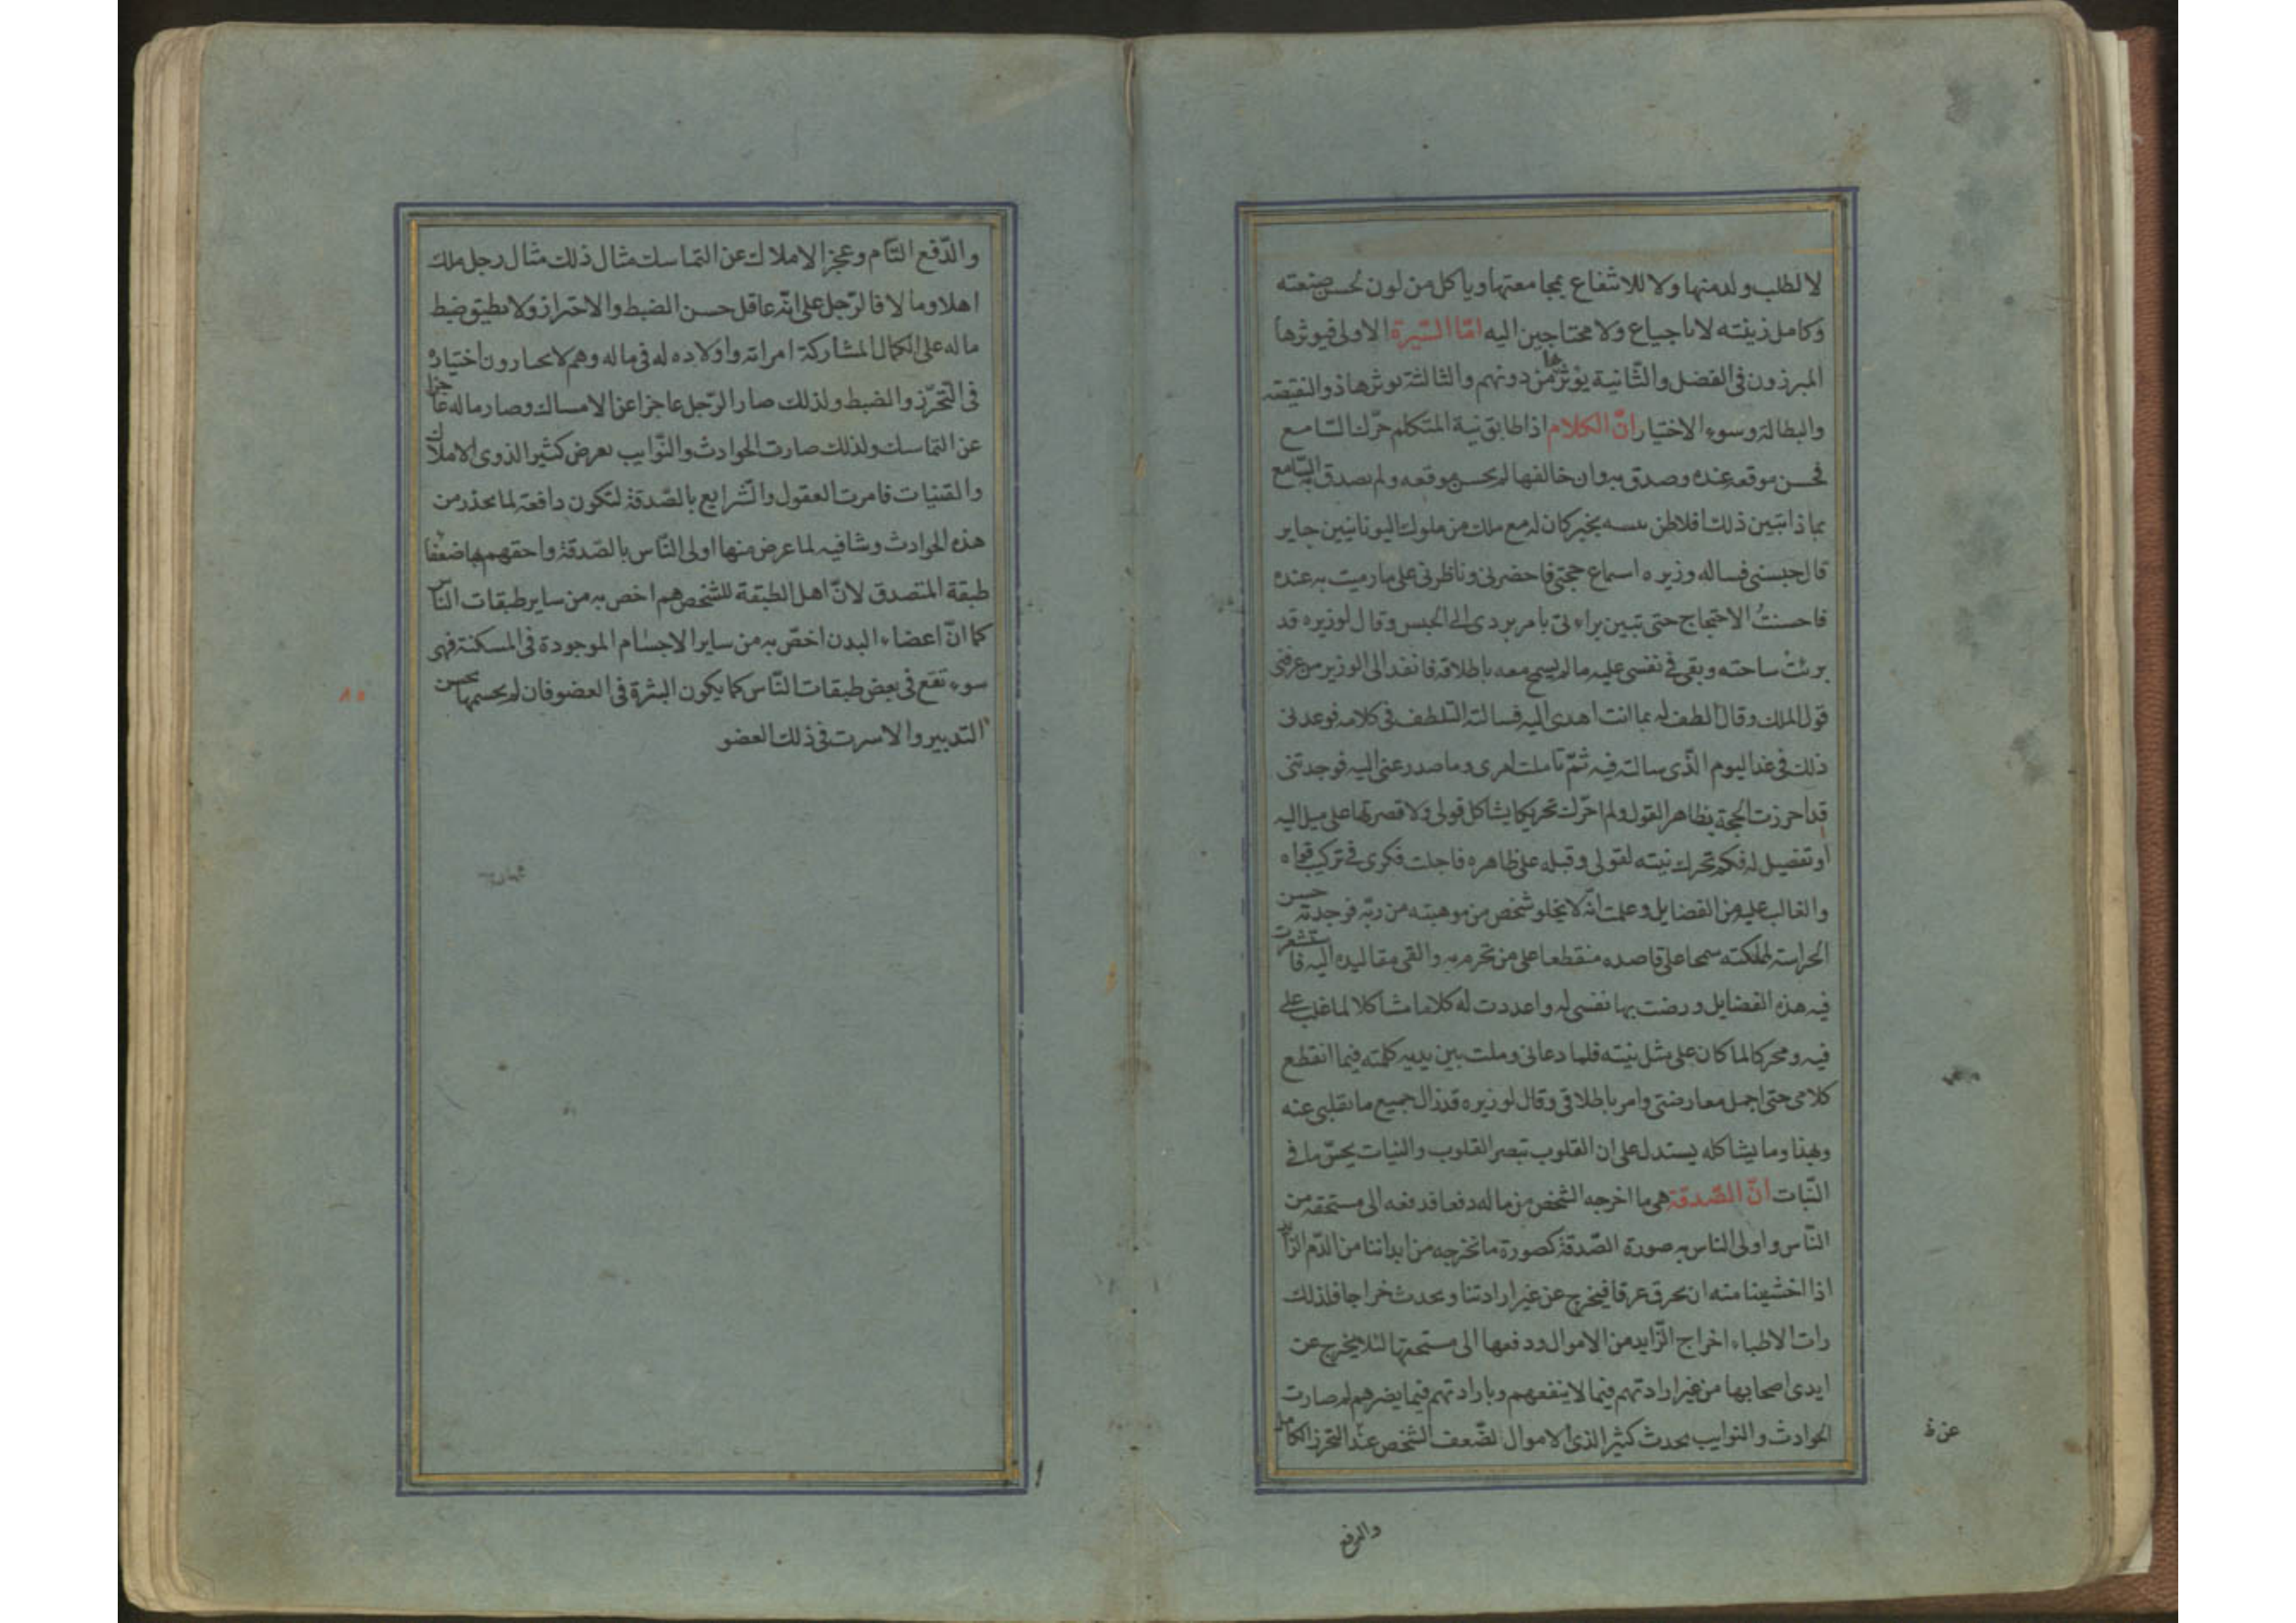 لا لطلب ولد منها ولا للانتفاع بمجامعتها وياكل من لون لحسن صنعته
وكامل زينته لا باجياع ولا محتاجين اليه امّا السّيرة الاولى فيوثرها
المبرزون فى الفضل والثّانية يؤثرها من دونهم والثالثة يوثرها ذو النقيصة
والبطالة وسوء الاختيار انّ الكلام اذا طابق نية المتكلم حرّك السّامع
فحسن موقعه عنده وصدق به وان خالفها لم يحسن موقعه ولم يصدق به السّامع
بماذا تبين ذلك افلاطن بخبر كان له مع ملك من ملوك اليونانيين جاير
قال حبسنى فساله وزيره اسماع حجتى فاحضرنى وناظرنى على ما رميت به عنده
فاحسنتُ الاحتجاج حتى تبين براءتى بامر بردى الى الحبس وقال لوزيره قد
برئت ساحته وبقى فى نفسى عليه ما لم يسمح معه باطلاقه فانفد الى الوزير من عرفنى
قول الملك وقال الطف له بما انت اهدى اليه فسالته التلطف فى كلامه فوعدنى
ذلك فى غد اليوم الّذى سالته فيه ثمّ تاملت امرى وما صدر عنى اليه فوجدتنى
قد احرزت الحجة بظاهر القول ولم احرّك تحريكا يشاكل قولى ولا قصرتها على ميل اليه
او تفضيل له فكم تحرك نيته لقولى وقبله على ظاهره فاجلت فكرى فى تركيب قواه
والغالب عليه من الفضايل وعلمت انّه لا يخلو شخص من موهبته من ربّه فوجدته حسن
الحراسة لمملكته سمحا على قاصده منقطعا على من تحرم به والقى مقاليده اليه فاستشعرت
فيه هذه الفضايل ورضت بها نفسى له واعددت له كلاما مشاكلا لما غلب على
فيه ومحركا لما كان على مثل نيته فلما دعانى وملت بين يديه كلمته فيما انقطع
كلامى حتى اجمل معارضتى وامر باطلاقى وقال لوزيره قد زال جميع ما بقلبى عنه
وبهذا وما يشاكله يستدل على ان القلوب تبصر القلوب والنيات يحسّ ما فى
النّيات انّ الصّدقة هى ما اخرجه الشخص من ماله دفعا قد فعه الى مستحقه من
النّاس واولى الناس به صورة الصّدقة كصورة ما نخرجه من ابداننا من الدّم الزّايد
اذا اخشينا منه ان يحرق عرقا فيخرج عن غير ارادتنا ويحدث خراجا فلذلك
رات الاطباء اخراج الزّايد من الاموال ودفعها الى مستحقها لئلا يخرج عن
ايدى اصحابها من غير ارادتهم فيما لا ينفعهم وبارادتهم فيما يضرهم لم صارت
الحوادث والنوايب يحدث كثيرا لذى الاموال لضّعف الشخص عند التحرز الكامل
عن ظ
والدفع
والدّفع التّام وعجز الاملاك عن التماسك مثال ذلك مثال رجل ملك
اهلا ومالا فالرّجل على انّه عاقل حسن الضبط والاحتراز ولا يطيق ضبط
ماله على الكمال المشاركة امراته واولاده له فى ماله وهم لا يحتارون اختياره
فى التحرّز والضبط ولذلك صار الرّجل عاجزا عن الامساك وصار ماله عاجزا
عن التماسك ولذلك صارت الحوادث والنّوايب يعرض كثيرا لذوى الاملاك
والقنيات فامرت العقول والشّرايع بالصّدقة لتكون دافعة لما يحذر من
هذه الحوادث وشافيه لما عرض منها اولى النّاس بالصّدقة واحقهم بها ضعفا
طبقة المتصدق لانّ اهل الطبقة للشخص هم اخص به من ساير طبقات النّاس
كما انّ اعضاء البدن اخصّ به من ساير الاجسام الموجودة فى المسكنة فهى
سوء تقع فى بعض طبقات النّاس كما يكون البثرة فى العضو فان لم يحسمها بحسن
التدبير والا سرت فى ذلك العضو